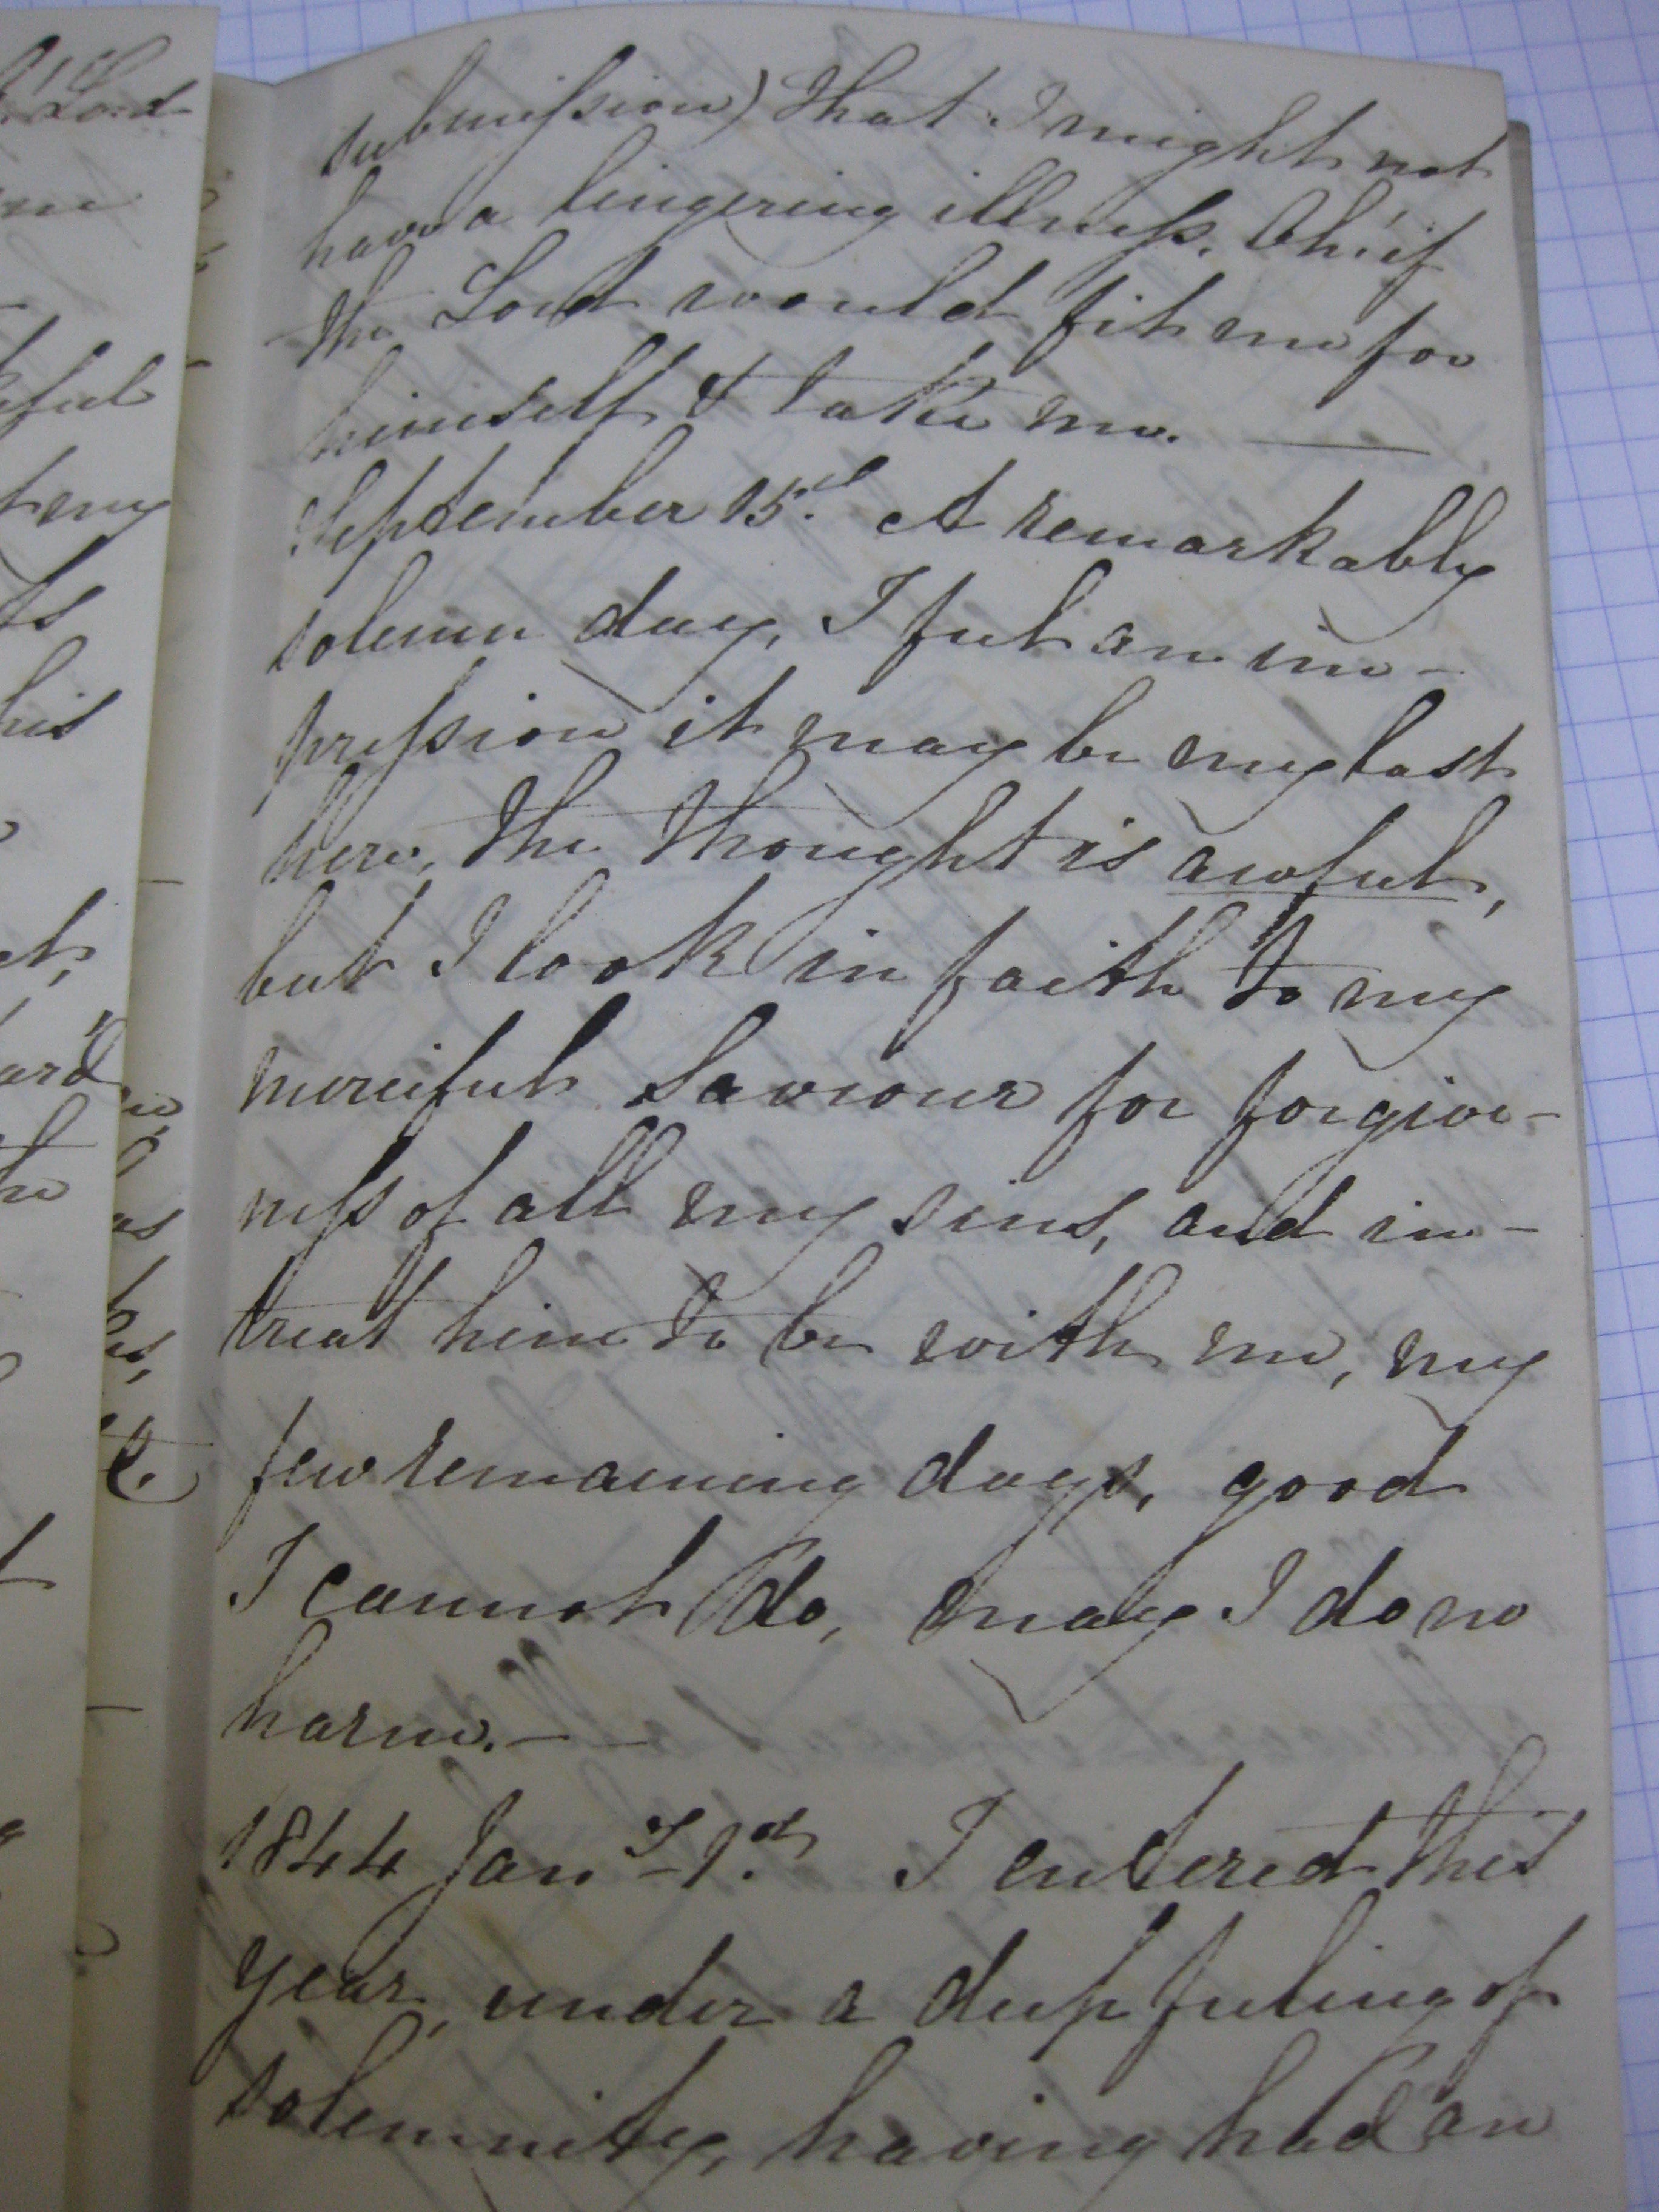 submission) that I might not
have a lingering illness. Oh! if
the Lord would fit me for
himself & take me. —
September 15.d A remarkably
solemn day, I felt an im-
pression it may be my last
here, the thought is awful,
but I look in faith to my
merciful Saviour for forgive-
ness of all my sins, and in-
treat him to be with me, my
few remaining days, good
I cannot do, may I do no
harm. — —
1844 Jany 1.st I entered this
year, under a deep feeling of
solemnity, having had an